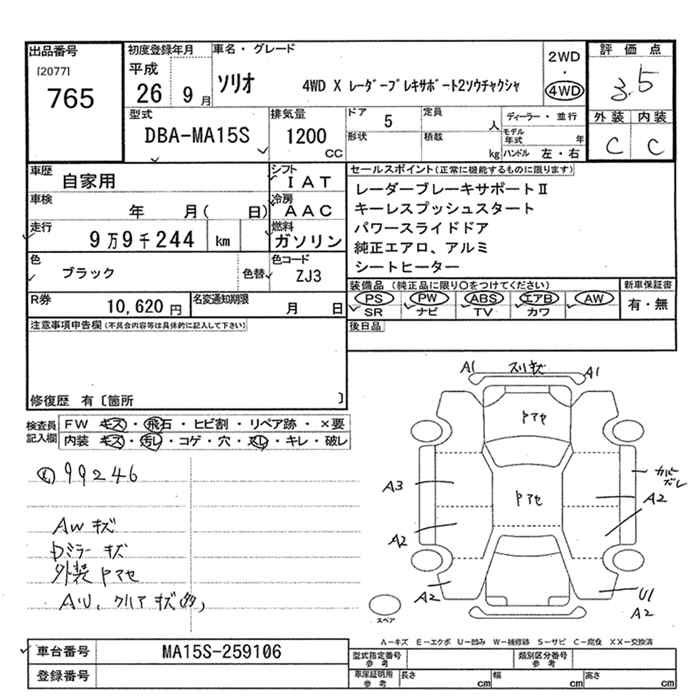 出品番号
[2077]
765
初度登録年月
平成
26 9月
車名・グレード
ソリオ 4WD X レーダーブレキサポート2ソウチャクシャ
2WD
・
4WD
評価点
3.5
外装 内装
C C
型式
DBA-MA15S
排気量
1200
CC
ドア 5
形状
定員 人
積載 kg
ディーラー・並行
モデル年式 年
ハンドル 左・右
車歴
自家用
シフト
IAT
車検
年 月( 日)
冷房
AAC
走行
9万9千244 km
燃料
ガソリン
色
ブラック
色替
色コード
ZJ3
R券
10,620円
名変通知期限
月 日
セールスポイント(正常に機能するものに限ります)
レーダーブレーキサポートⅡ
キーレスプッシュスタート
パワースライドドア
純正エアロ、アルミ
シートヒーター
装備品(純正品に限り○をつけてください)
PS PW ABS エアB AW
SR ナビ TV カワ
新車保証書
有・無
後日品
注意事項申告欄(不具合内容等は具体的に記入して下さい)
修復歴 有〔箇所 〕
検査員記入欄
FW キズ・飛石・ヒビ割・リペア跡・×要
内装 キズ・汚レ・コゲ・穴・スレ・キレ・破レ
99246
AW キズ
Dミラー キズ
外装 ヤマセ
クリア キズ
A1 スリキズ A1
ヤマセ
ヤマセ
A3
A2
A2
カバーズレ
A2
U1
A2
スペア
A-キズ E-エクボ U-凹み W-補修跡 S-サビ C-腐食 XX-交換済
車台番号
MA15S-259106
登録番号
型式指定番号
参考
類別区分番号
参考
車庫証明用
参考
長さ cm
幅 cm
高さ cm